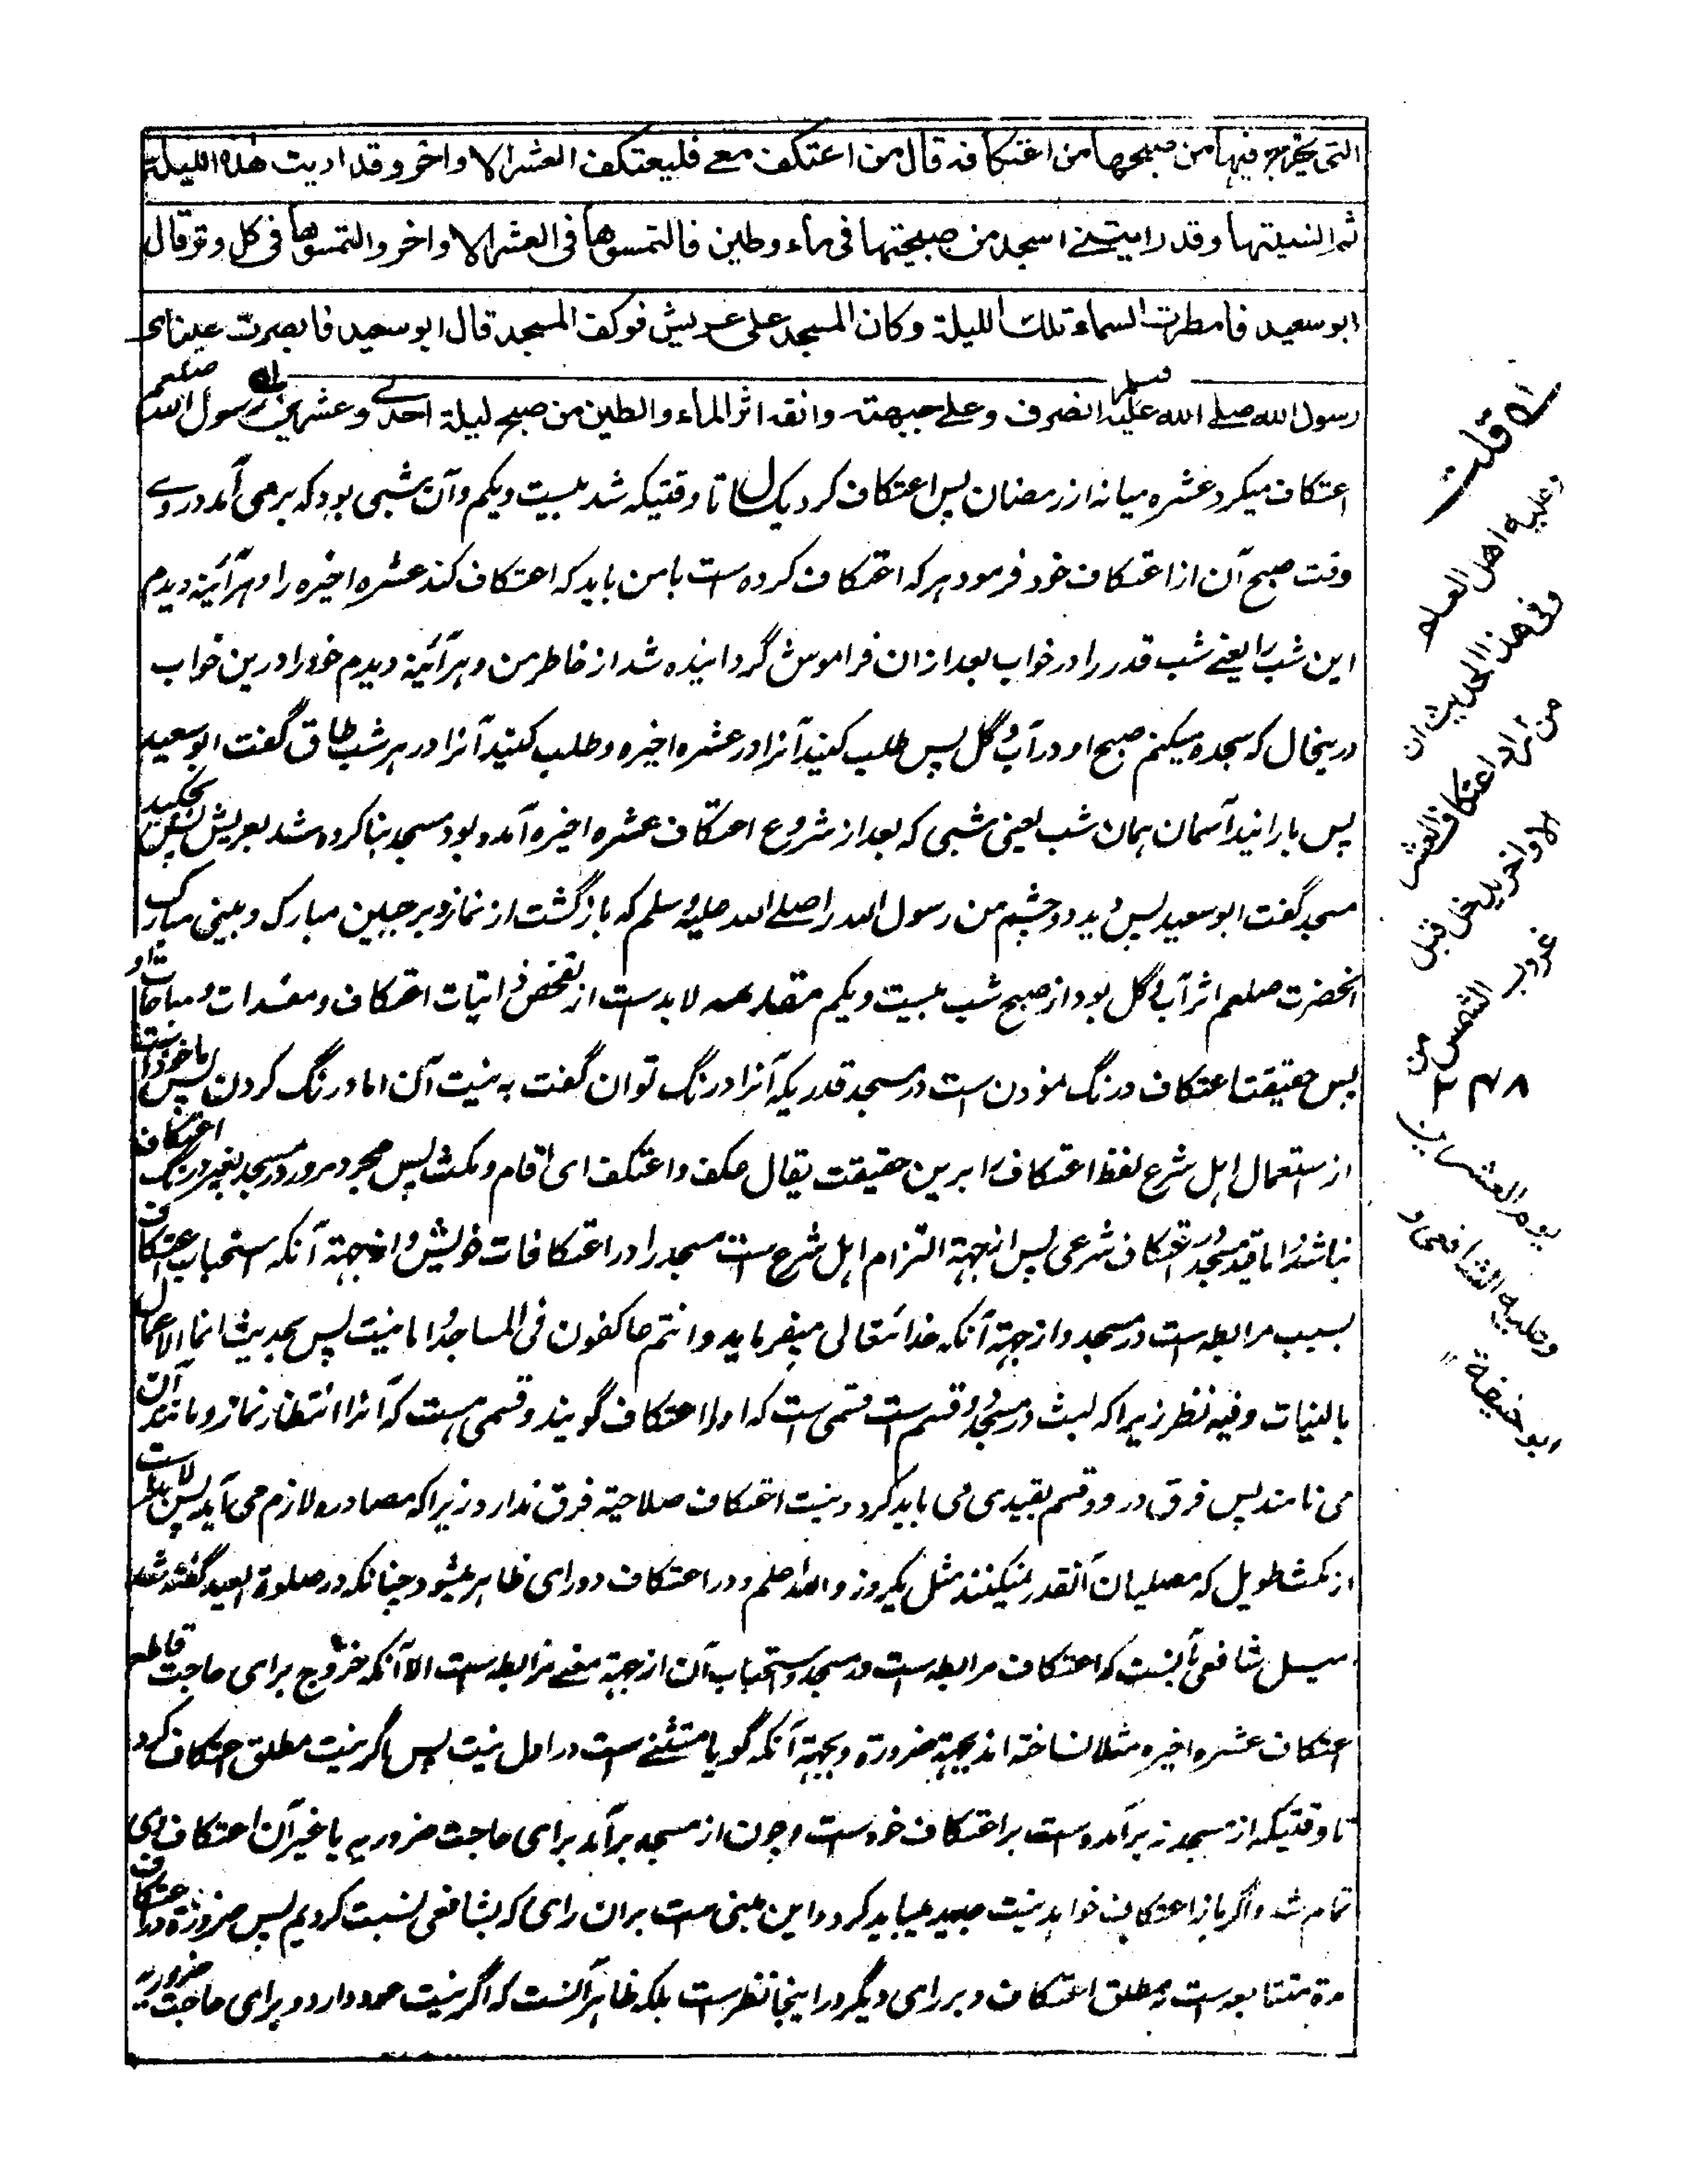 التی یخرج فیها من صبحها من اعتکافه قال من اعتکف معے فلیعتکف العشر الاواخر وقد اریت هذه اللیلة
ثم انسیتها وقد رایتنے اسجد من صبیحتها فی ماء وطین فالتمسوها فی العشر الاواخر والتمسوها فی کل وتر قال
ابو سعید فامطرت السماء تلک اللیلة وکان المسجد علی عریش فوکف المسجد قال ابو سعید فابصرت عینای
رسول الله صلے الله علیه وسلم انصرف وعلے جبهته وانفه اثر الماء والطین من صبح لیلة احدے وعشرین رسول الله صلعم
اعتکاف میکرد عشره میانه از رمضان پس اعتکاف کرد یک سال تا وقتیکه شد بیست ویکم وآن شبی بود که برمی آمد در وے
وقت صبح آن از اعتکاف خود فرمود هر که اعتکاف کرده است با من باید که اعتکاف کند عشره اخیره را وهرآئینه دیدم
این شب را یعنے شب قدر را در خواب بعد ازان فراموش گردانیده شد از خاطر من وهرآئینه دیدم خود را درین خواب
درینحال که سجده میکنم صبح او در آب وگل پس طلب کنید آنرا در عشره اخیره وطلب کنید آنرا در هر شب طاق گفت ابو سعید
پس بارانید آسمان همان شب یعنی شبی که بعد از شروع اعتکاف عشره اخیره آمده بود ومسجد بنا کرده شد بعریش پس بچکید
مسجد گفت ابو سعید پس دید دو چشم من رسول الله را صلے الله علیه وسلم که بازگشت از نماز وبر جبین مبارک وبینی مبارک
آنحضرت صلعم اثر آب وگل بود از صبح شب بیست ویکم مقدمه لابدست از تفحص ذاتیات اعتکاف ومفسدات ومباحات او
پس حقیقت اعتکاف درنگ نمودن است در مسجد قدریکه آنرا درنگ توان گفت به نیت آن اما درنگ کردن پس ماخوذ است
از استعمال اهل شرع لفظ اعتکاف را برین حقیقت یقال عکف واعتکف ای اقام ومکث پس مجرد مرور در مسجد بغیر درنگ اعتکاف
نباشد واما قید مسجد در اعتکاف شرعی پس از جهة التزام اهل شرع است مسجد را در اعتکافات خویش واز جهة آنکه استحباب اعتکاف
بسبب مرابطه است در مسجد واز جهة آنکه خدا تعالی میفرماید وانتم عاکفون فی المساجد واما نیت پس بحدیث انما الاعمال
بالنیات وفیه نظر زیرا که لبث در مسجد دو قسم است قسمی است که او را اعتکاف گویند وقسمی هست که آنرا انتظار نماز ومانند آن
می نامند پس فرق در دو قسم بقیدی می باید کرد ونیت اعتکاف صلاحیة فرق ندارد زیرا که مصادره لازم می آید پس لابد است
از مکث طویل که مصلیان آنقدر نمیکنند مثل یکروز والله اعلم ودر اعتکاف دو رای ظاهر میشود چنانکه در صلوة العید گفته شد
میل شافعی بآنست که اعتکاف مرابطه است در مسجد واستحباب آن از جهة معنے مرابطه است الا آنکه خروج برای حاجت قاطع
اعتکاف عشره اخیره مثلا نساخته اند بجهة ضرورة وبجهة آنکه گویا مستثنے است در اول نیت پس اگر نیت مطلق اعتکاف کرد
تا وقتیکه از مسجد نه برآمده است بر اعتکاف خود است وچون از مسجد برآمد برای حاجت ضروریه یا غیر آن اعتکاف وی
تمام شد واگر باز اعتکاف خواهد نیت جدید میباید کرد واین مبنی است بران رای که بشافعی نسبت کردیم پس ضرورة در اعتکاف
مدة متتابعه است نه مطلق اعتکاف وبر رای دیگر در اینجا نظر است بلکه ظاهر آنست که اگر نیت عود دارد وبرای حاجت ضروریه
قلت
وعلیه اهل العلم
وفی هذا الحدیث ان
من اراد اعتکاف العشر
الاواخر یدخل قبل
غروب الشمس من
یوم العشرین
وعلیه الشافعی و
ابو حنیفة ۱۲